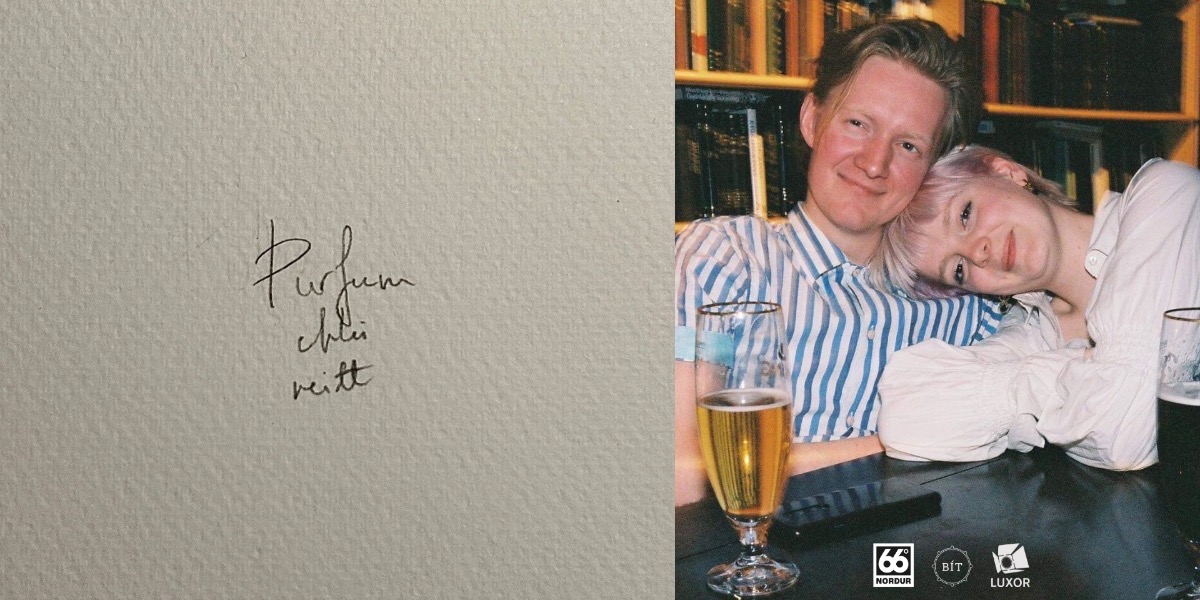 Þurfum
ekki
neitt
66°
NORÐUR
BÍT
LUXOR